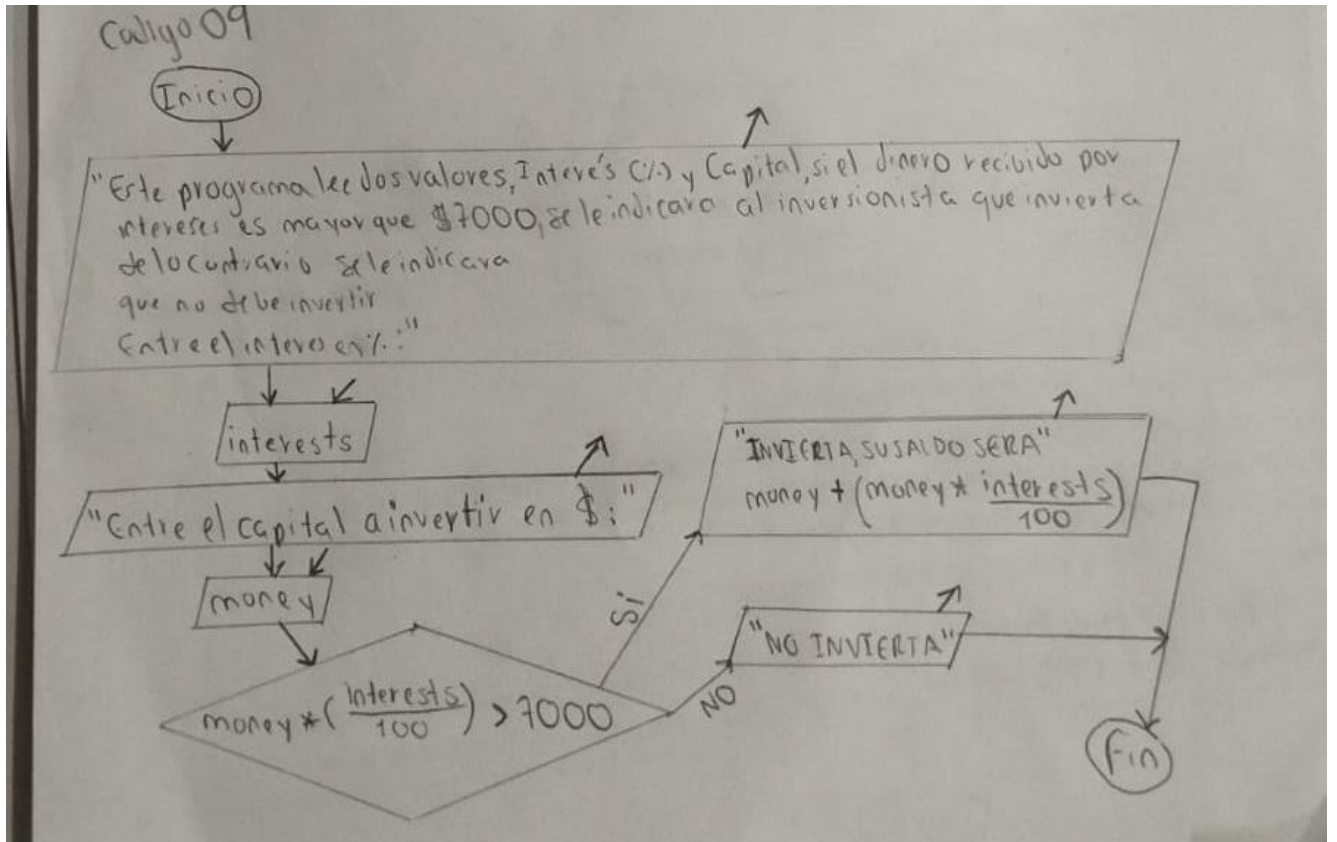 Codigo 09
Inicio
"Este programa lee dos valores, Interés (%) y Capital, si el dinero recibido por
intereses es mayor que $7000, se le indicara al inversionista que invierta
de lo contrario se le indicara
que no debe invertir
Entre el interes en %:"
interests
"Entre el capital a invertir en $:"
money
money*(interests/100) > 7000
Si
"INVIERTA, SU SALDO SERA"
money + (money * interests/100)
NO
"NO INVIERTA"
Fin